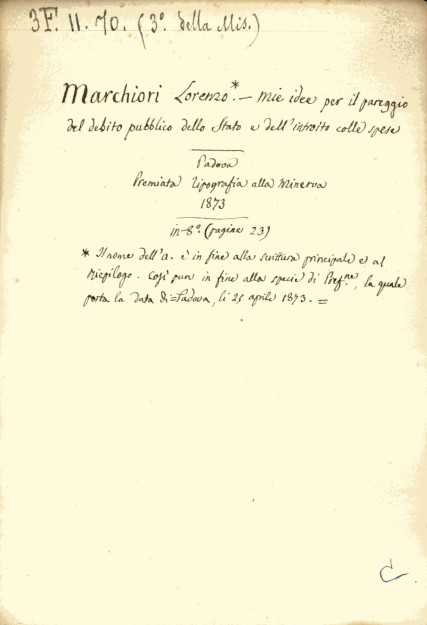 3F. 11. 70. (3º. della Mis.)
Marchiori Lorenzo*. — mie idee per il pareggio
del debito pubblico dello Stato e dell'introito colle spese
Padova
Premiata Tipografia alla Minerva
1873
in-8º. (pagine 23)
* Il nome dell'a. è in fine alla scrittura principale e al
Riepilogo. Così pure in fine alla specie di Prefne, la quale
porta la data di = Padova, li 25 aprile 1873. =
C